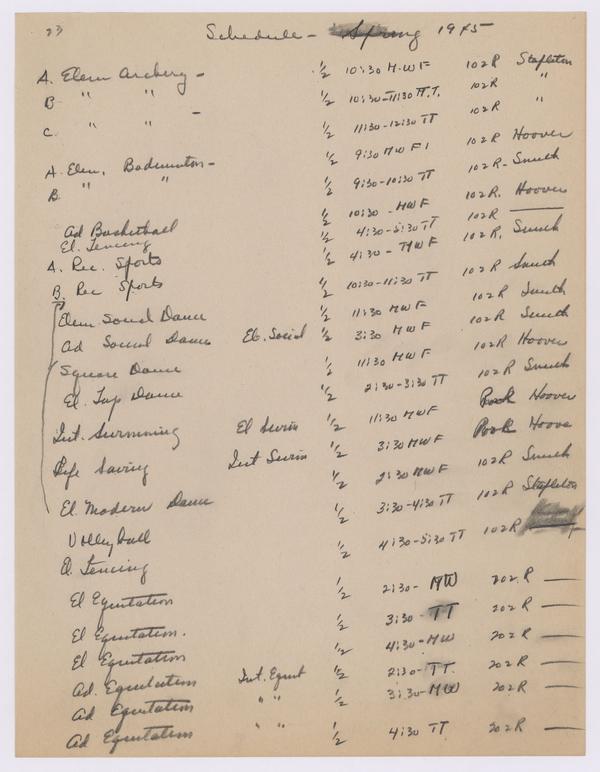 23
Schedule - Spring 1945
A. Elem Archery - 1/2 10:30 M.W F 102 R Stapleton
B " " 1/2 10:30-11:30 T.T. 102R "
C. " " - 1/2 11:30-12:30 TT 102 R "
A. Elem. Badminton - 1/2 9:30 MWF 102 R Hoover
B. " " 1/2 9:30-10:30 TT 102 R- Smith
1/2 10:30 - MWF 102R. Hoover
Ad Basketball 1/2 4:30-5:30 TT 102R
El. Fencing 1/2 4:30 - MWF 102 R. Smith
A. Rec. Sports
B. Rec Sports 1/2 10:30-11:30 TT 102 R Smith
Elem Social Dance 1/2 11:30 MWF 102R Smith
Ad Social Dance El. Social 1/2 3:30 MWF 102R Smith
Square Dance 1/2 11:30 MWF 102 R Hoover
El. Tap Dance 1/2 2:30-3:30 TT 102R Smith
Int. Swimming El Swim 1/2 11:30 MWF Pool Hoover
Life Saving Int Swim 1/2 3:30 MWF Pool Hoover
1/2 2:30 MWF 102R Smith
El. Modern Dance 1/2 3:30-4:30 TT 102R Stapleton
Volleyball 1/2 4:30-5:30 TT 102R
El. Fencing
El Equitation 1/2 2:30- MW 202 R —
El Equitation. 1/2 3:30- TT 202 R —
El Equitation 1/2 4:30-MW 202R —
Ad. Equitation Int. Equit 1/2 2:30-TT. 202R —
Ad Equitation " " 1/2 3:30-MW 202R —
Ad Equitation " " 1/2 4:30 TT 202R —